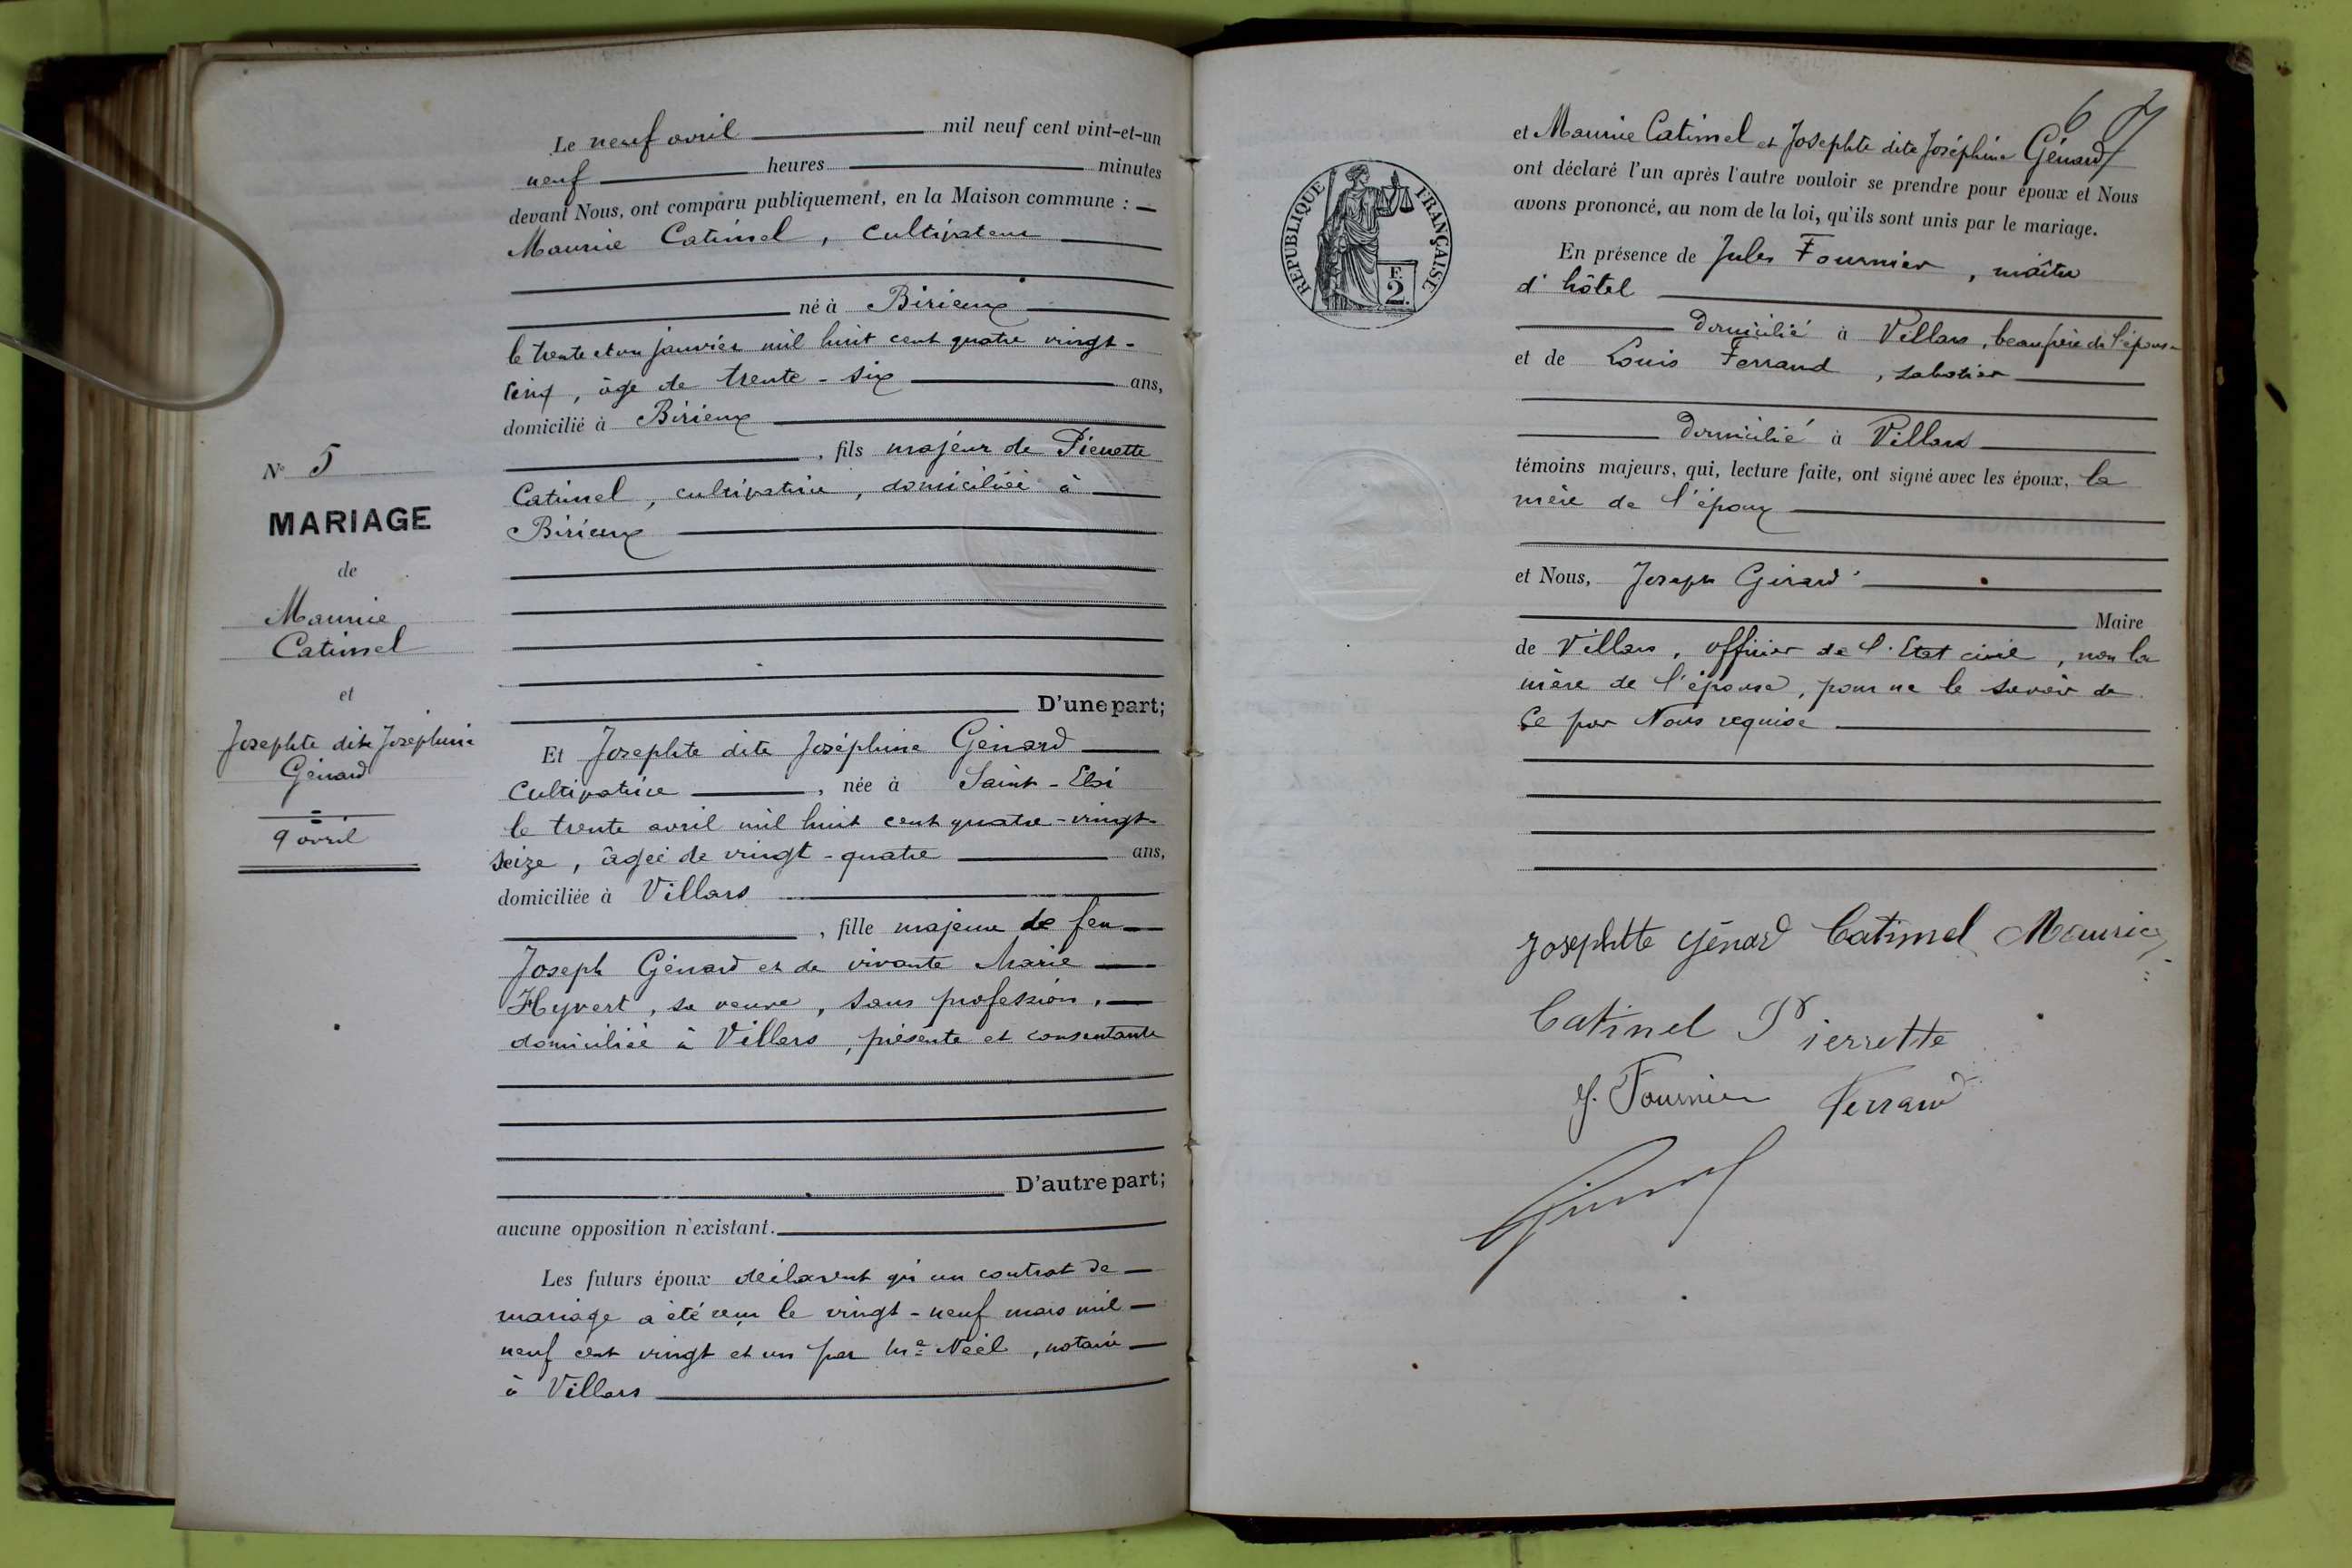 Le neuf avril mil neuf cent vint-et-un
neuf heures minutes
devant Nous, ont comparu publiquement, en la Maison commune :
Maurice Catimel, cultivateur
né à Birieux
le trente et un janvier mil huit cent quatre vingt-
cinq, âge de trente-six ans,
domicilié à Birieux
, fils majeur de Pierrette
Catimel, cultivatrice, domiciliée à
Birieux
D'une part;
Et Josephte dite Joséphine Génard
cultivatrice , née à Saint-Eloi
le trente avril mil huit cent quatre-vingt-
seize, âgée de vingt-quatre ans,
domiciliée à Villars
, fille majeure de feu
Joseph Génard et de vivante Marie
Hyvert, sa veuve, sans profession,
domiciliée à Villars, présente et consentante
D'autre part;
aucune opposition n'existant.
Les futurs époux déclarent qu'un contrat de
mariage a été reçu le vingt-neuf mars mil
neuf cent vingt et un par Me Noël, notaire
à Villars
N° 5
MARIAGE
de
Maurice
Catimel
et
Josephte dite Joséphine
Génard
9 avril
67
et Maurice Catimel et Josephte dite Joséphine Génard
ont déclaré l'un après l'autre vouloir se prendre pour époux et Nous
avons prononcé, au nom de la loi, qu'ils sont unis par le mariage.
RÉPUBLIQUE FRANÇAISE
F.
2.
En présence de Jules Fournier, maître
d'hôtel
domicilié à Villars, beau frère de l'épouse
et de Louis Ferrand, sabotier
domicilié à Villars
témoins majeurs, qui, lecture faite, ont signé avec les époux, la
mère de l'époux
et Nous, Joseph Girard
Maire
de Villars, officier de l'Etat civil, non la
mère de l'épouse, pour ne le savoir de
ce par Nous requise
Josephtte Génard Catimel Maurice
Catinel Pierrette
J. Fournier Ferrand
Girard